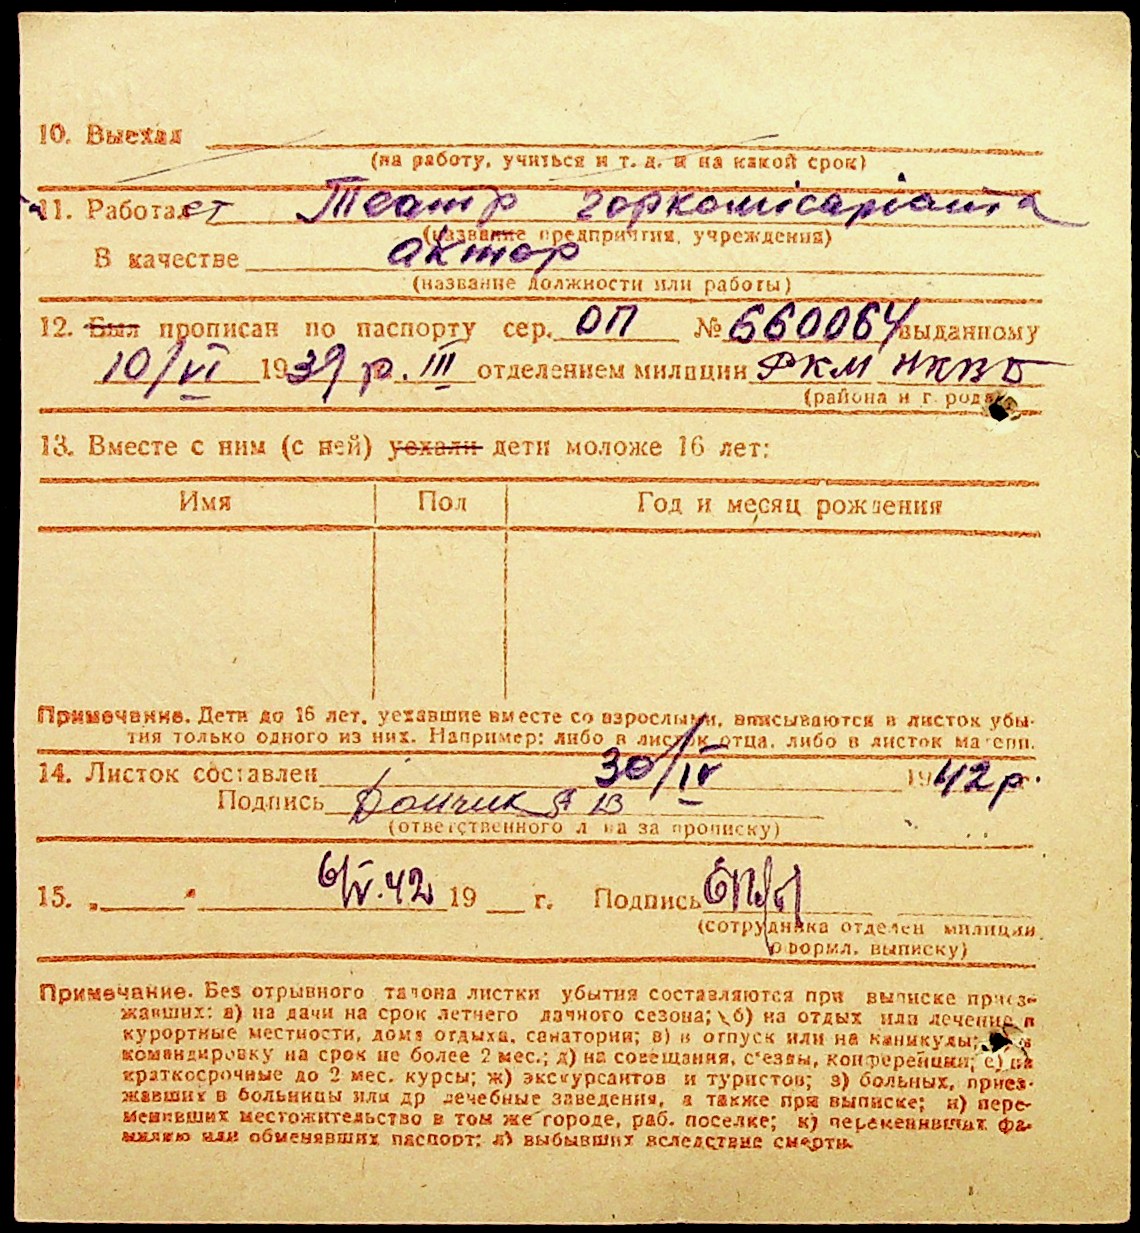 10. Выехал
(на работу, учиться и т. д. и на какой срок)
11. Работает Театр горкомісаріата
(название предприятия, учреждения)
В качестве актор
(название должности или работы)
12. Был прописан по паспорту сер. ОП № 660064 выданному
10/VI 1939 р. III отделением милиции РКМ НКВД
(района и города)
13. Вместе с ним (с ней) уехали дети моложе 16 лет:
Имя Пол Год и месяц рождения
Примечание. Дети до 16 лет, уехавшие вместе со взрослыми, вписываются в листок убы-
тия только одного из них. Например: либо в листок отца, либо в листок матери.
14. Листок составлен 30/IV 1942 р.
Подпись
(ответственного лица за прописку)
15. „ " 6/V.42 19 г. Подпись
(сотрудника отделен милиции
оформл. выписку)
Примечание. Без отрывного талона листки убытия составляются при выписке приез-
жавших: а) на дачи на срок летнего дачного сезона; б) на отдых или лечение в
курортные местности, дома отдыха, санатории; в) в отпуск или на каникулы;
командировку на срок не более 2 мес.; д) на совещания, с'езды, конференции; е) на
краткосрочные до 2 мес. курсы; ж) экскурсантов и туристов; з) больных, приез-
жавших в больницы или др лечебные заведения, а также при выписке; и) пере-
менивших местожительство в том же городе, раб. поселке; к) переменивших фа-
милию или обменявших паспорт; л) выбывших вследствие смерти.